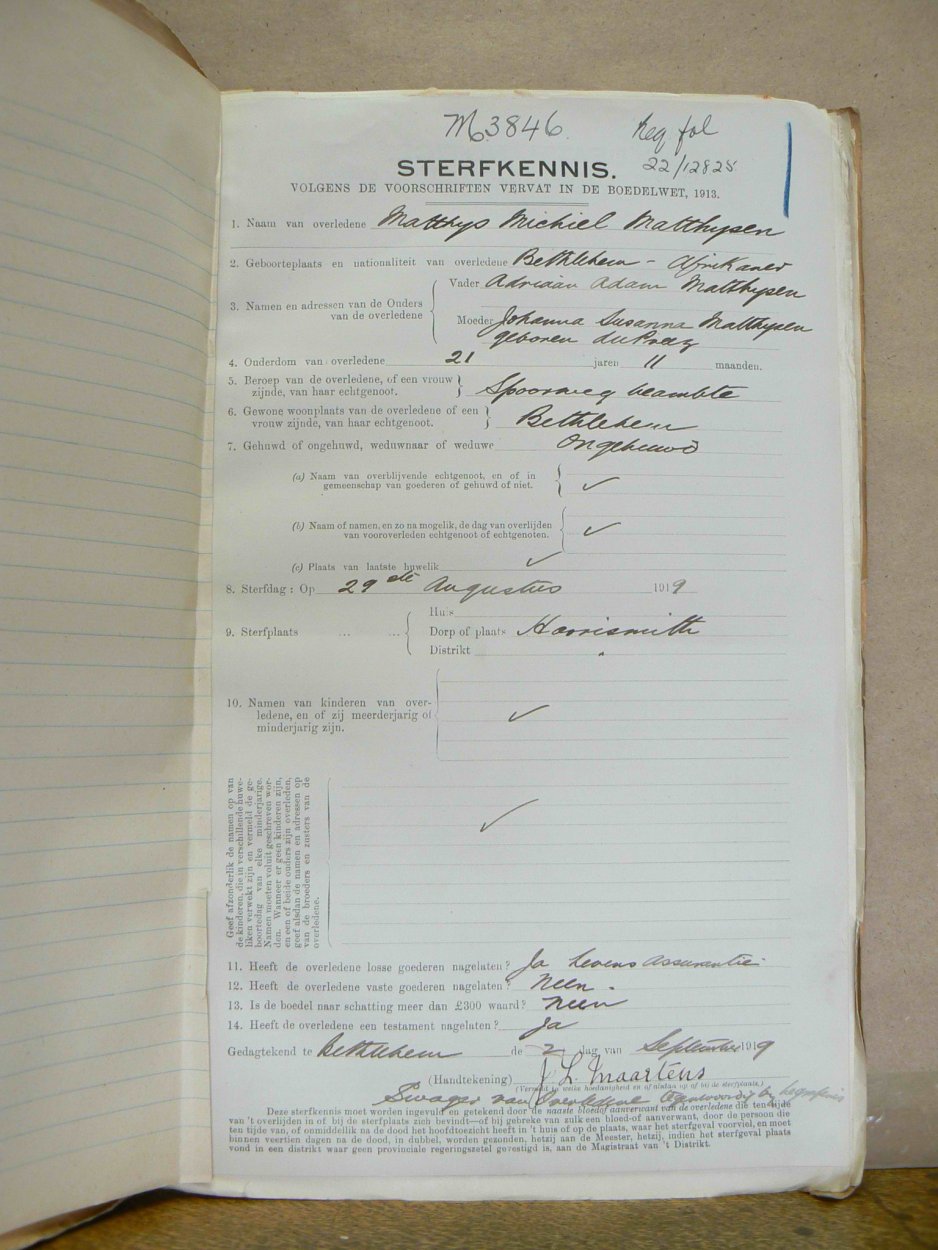 M 3846. Reg fol
22/12825
STERFKENNIS.
VOLGENS DE VOORSCHRIFTEN VERVAT IN DE BOEDELWET, 1913.
1. Naam van overledene Matthys Michiel Matthysen
2. Geboorteplaats en nationaliteit van overledene Bethlehem - Afrikaner
3. Namen en adressen van de Ouders van de overledene
Vader Adriaan Adam Matthysen
Moeder Johanna Susanna Matthysen
geboren du Preez
4. Ouderdom van overledene 21 jaren 11 maanden.
5. Beroep van de overledene, of een vrouw
zijnde, van haar echtgenoot. Spoorweg beambte
6. Gewone woonplaats van de overledene of een
vrouw zijnde, van haar echtgenoot. Bethlehem
7. Gehuwd of ongehuwd, weduwnaar of weduwe Ongehuwd
(a) Naam van overblijvende echtgenoot, en of in
gemeenschap van goederen of gehuwd of niet. ✓
(b) Naam of namen, en zo na mogelik, de dag van overlijden
van vooroverleden echtgenoot of echtgenoten. ✓
(c) Plaats van laatste huwelik ✓
8. Sterfdag: Op 29ste Augustus 1919
9. Sterfplaats ... ...
Huis
Dorp of plaats Harrismith
Distrikt "
10. Namen van kinderen van over-
ledene, en of zij meerderjarig of
minderjarig zijn. ✓
Geef afzonderlik de namen op van
de kinderen, die in verschillende huwe-
liken verwekt zijn en vermeld de ge-
boortedag van elke minderjarige.
Namen moeten voluit geschreven wor-
den. Wanneer er geen kinderen zijn,
en een of beide ouders zijn overleden,
geef alsdan de namen en adressen op
van de broeders en zusters van de
overledene. ✓
11. Heeft de overledene losse goederen nagelaten? Ja Levens Assurantie
12. Heeft de overledene vaste goederen nagelaten? Neen.
13. Is de boedel naar schatting meer dan £300 waard? Neen
14. Heeft de overledene een testament nagelaten? Ja
Gedagtekend te Bethlehem de 2 dag van September 1919
(Handtekening) J. L. Maartens
(Vermeld in welke hoedanigheid en of al dan op of bij de sterfplaats.)
Swager van Overledene Tegenwoordig by begrafenis
Deze sterfkennis moet worden ingevuld en getekend door de naaste bloed of aanverwant van de overledene die ten tijde
van 't overlijden in of bij de sterfplaats zich bevindt—of bij gebreke van zulk een bloed-of aanverwant, door de persoon die
ten tijde van, of onmiddellik na de dood het hoofdtoezicht heeft in 't huis of op de plaats, waar het sterfgeval voorviel, en moet
binnen veertien dagen na de dood, in dubbel, worden gezonden, hetzij aan de Meester, hetzij, indien het sterfgeval plaats
vond in een distrikt waar geen provinciale regeringszetel gevestigd is, aan de Magistraat van 't Distrikt.